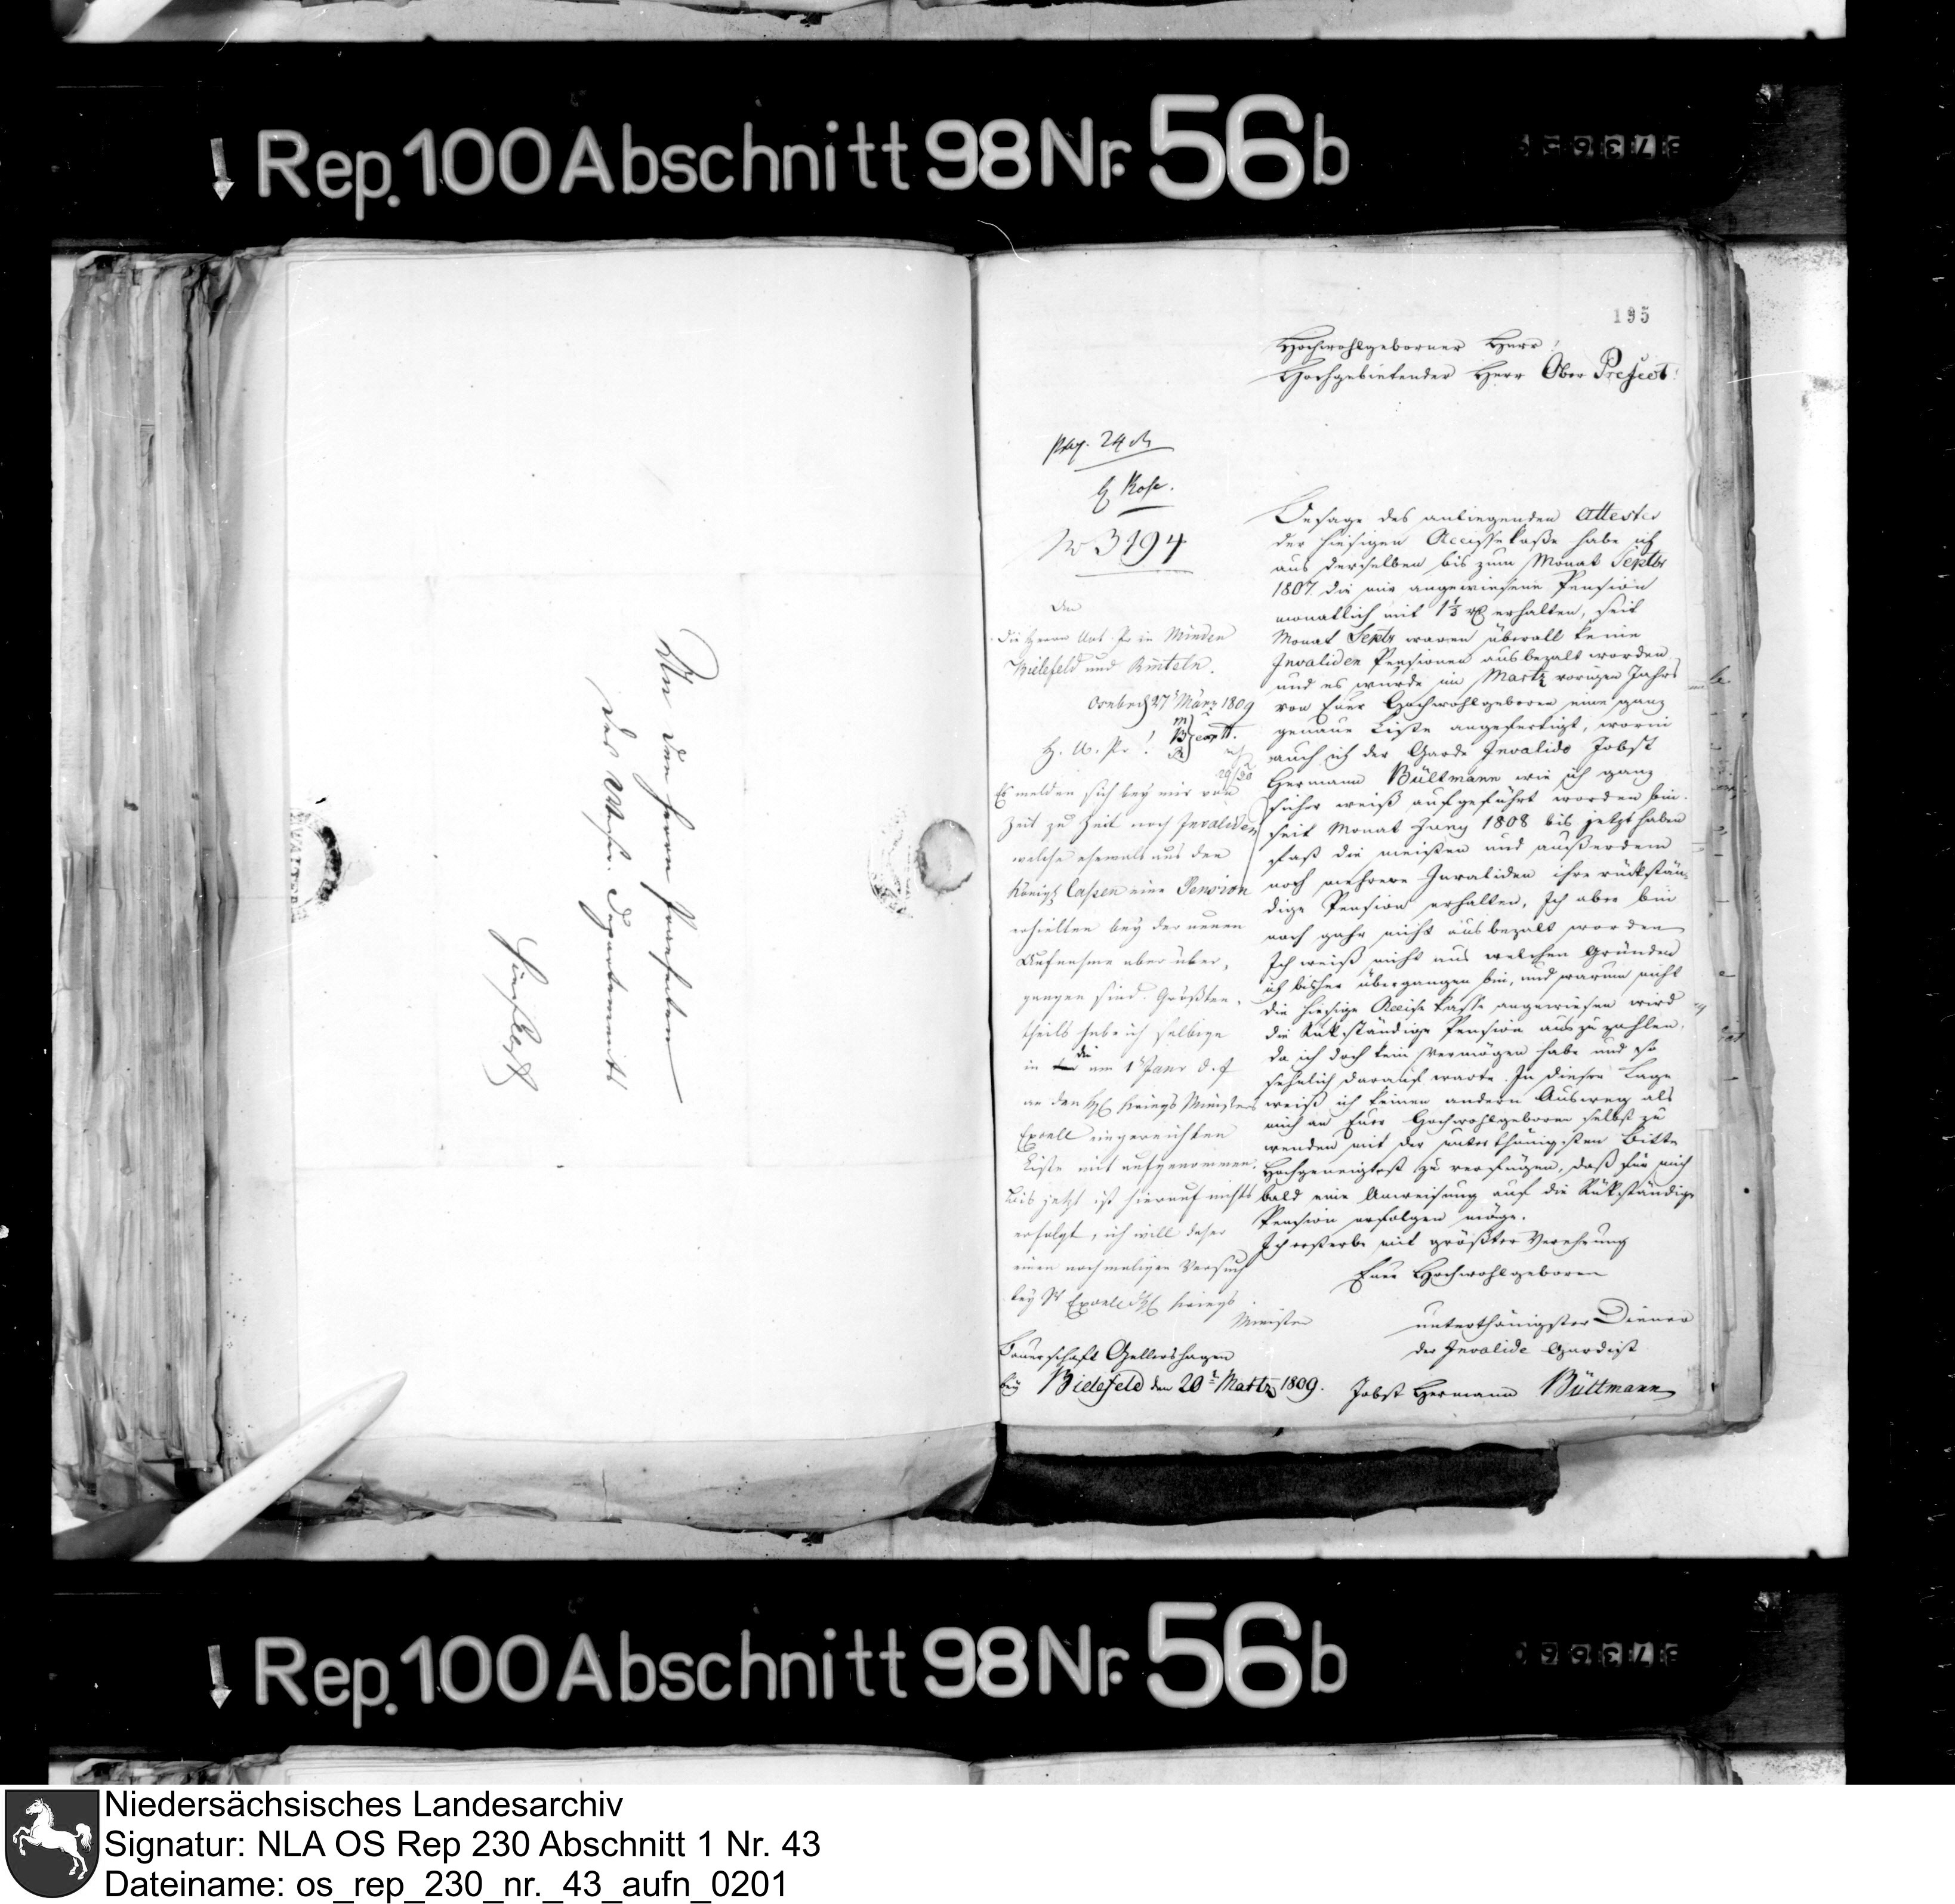 Rep. 100 Abschnitt 98 Nr. 56b
An den Herrn Praefecten
des Weser-Departements
hieselbst
195
Hochwohlgeborner Herr!
Hochgebietender Herr Ober Prefect!
No 3194
An
die Herrn Unt. Pr. in Minden
Bielefeld und Rinteln.
Osnbrck 27t März 1809
H. U. Pr!
Es melden sich bey mir von
Zeit zu Zeit noch Invaliden
welche ehemals aus den
Königl Cassen eine Pension
erhielten bey der neuen
Aufnahme aber über,
gangen sind. Größten,
theils habe ich selbige
in die am 1t Janr d. J
an den H Kriegs Ministers
Excell eingereichten
Liste mit aufgenommen.
Bis jetzt ist hierauf nichts
erfolgt, ich will daher
einen nochmaligen Versuch
bey Sr Excell d H Kriegs
Minister
Besage des anliegenden Attestes
der hiesigen Accisekaße habe ich
aus derselben bis zum Monat Septbr
1807 die mir angewiesene Pension
monatlich mit 1⅓ rt erhalten, seit
Monat Septr waren überall keine
Invaliden Pensionen ausbezalt worden
und es wurde im Martz vorigen Jahrs
von Euer Hochwohlgeboren eine ganz
genaue Liste angefertigt, worin
auch ich der Garde Invalide Jobst
Hermann Bültmann wie ich ganz
sicher weiß aufgeführt worden bin.
seit Monat Juny 1808 bis jetzt haben
fast die meisten und außerdem
noch mehrere Invaliden ihre rückstän-
dige Pension erhalten, Ich aber bin
noch gahr nicht ausbezalt worden
Ich weiß nicht aus welchen Gründen
ich bisher übergangen bin, und warum nicht
die hiesige Accise kasse angewiesen wird
die Rükständige Pension auszuzahlen,
da ich doch kein Vermögen habe und so
sehnlich darauf warte. In dieser Lage
weiß ich keinen andern Ausweg als
mich an Euer Hochwohlgeboren selbst zu
wenden mit der unterthänigsten Bitte
Hochgeneigtest zu verfügen, daß für mich
bald eine Anweisung auf die Rükständige
Pension erfolgen möge.
Ich ersterbe mit größter Verehrung
Euer Hochwohlgeboren
unterthänigster Diener
der Invalide Gardist
Jobst Hermann Bültmann
Bauerschaft Gellershagen
bey Bielefeld den 20t Martz 1809.
Rep. 100 Abschnitt 98 Nr. 56b
Niedersächsisches Landesarchiv
Signatur: NLA OS Rep 230 Abschnitt 1 Nr. 43
Dateiname: os_rep_230_nr._43_aufn_0201